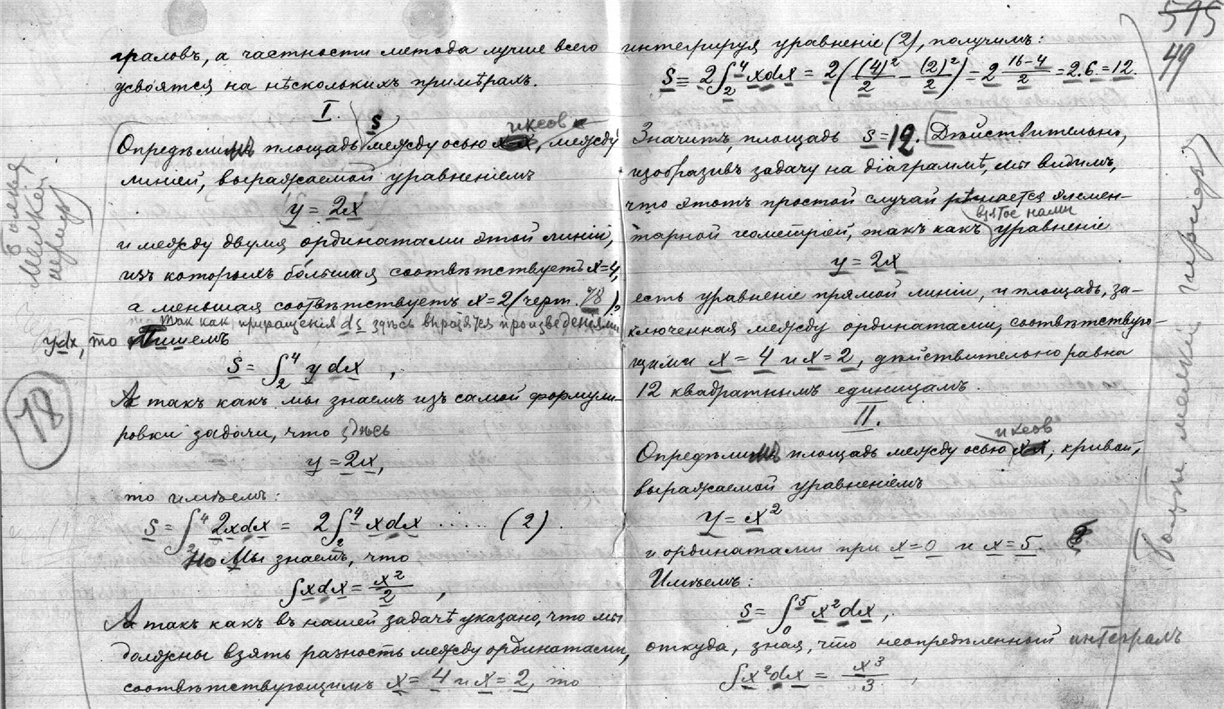 595
49
граловъ, а частности метода лучше всего
усвоятся на нѣсколькихъ примѣрахъ.
I.
Опредѣлимъ площадь s между осью иксовъ, между
линіей, выражаемой уравненіемъ
y = 2x
и между двумя ординатами этой линіи,
изъ которыхъ бо́льшая соотвѣтствуетъ x=4,
а меньшая соотвѣтствуетъ x=2 (черт. 78),
такъ какъ приращенія ds здѣсь выразятся произведеніями
ydx, то пишемъ
s = ∫₂⁴ y dx ,
А такъ какъ мы знаемъ изъ самой формули-
ровки задачи, что здѣсь
y = 2x,
то имѣемъ:
s = ∫₂⁴ 2xdx = 2∫₂⁴ xdx ..... (2)
Но мы знаемъ, что
∫xdx = x²/2 ,
А такъ какъ въ нашей задачѣ указано, что мы
должны взять разность между ординатами,
соотвѣтствующимъ x = 4 и x = 2, то
78
болѣе
мелкій
интегрируя уравненіе (2), получимъ:
s = 2∫₂⁴ xdx = 2((4)²/2 − (2)²/2) = 2 16−4/2 = 2.6 = 12.
Значитъ, площадь s = 12. Дѣйствительно,
изобразивъ задачу на діаграммѣ, мы видимъ,
что этотъ простой случай рѣшается элемен-
тарной геометріей, такъ какъ взятое нами уравненіе
y = 2x
есть уравненіе прямой линіи, и площадь, за-
ключенная между ординатами, соотвѣтствую-
щими x = 4 и x = 2, дѣйствительно равна
12 квадратнымъ единицамъ.
II.
Опредѣлимъ площадь между осью иксовъ, кривой,
выражаемой уравненіемъ
y = x²
и ординатами при x=0 и x=5.
Имѣемъ:
s = ∫₀⁵ x²dx,
откуда, зная, что неопредѣленный интегралъ
∫x²dx = x³/3 ,
мелкій